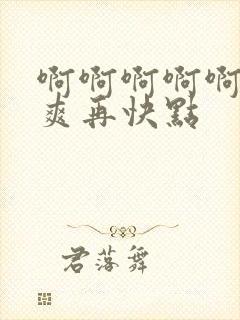 啊啊啊啊啊
爽再快點
君落舞